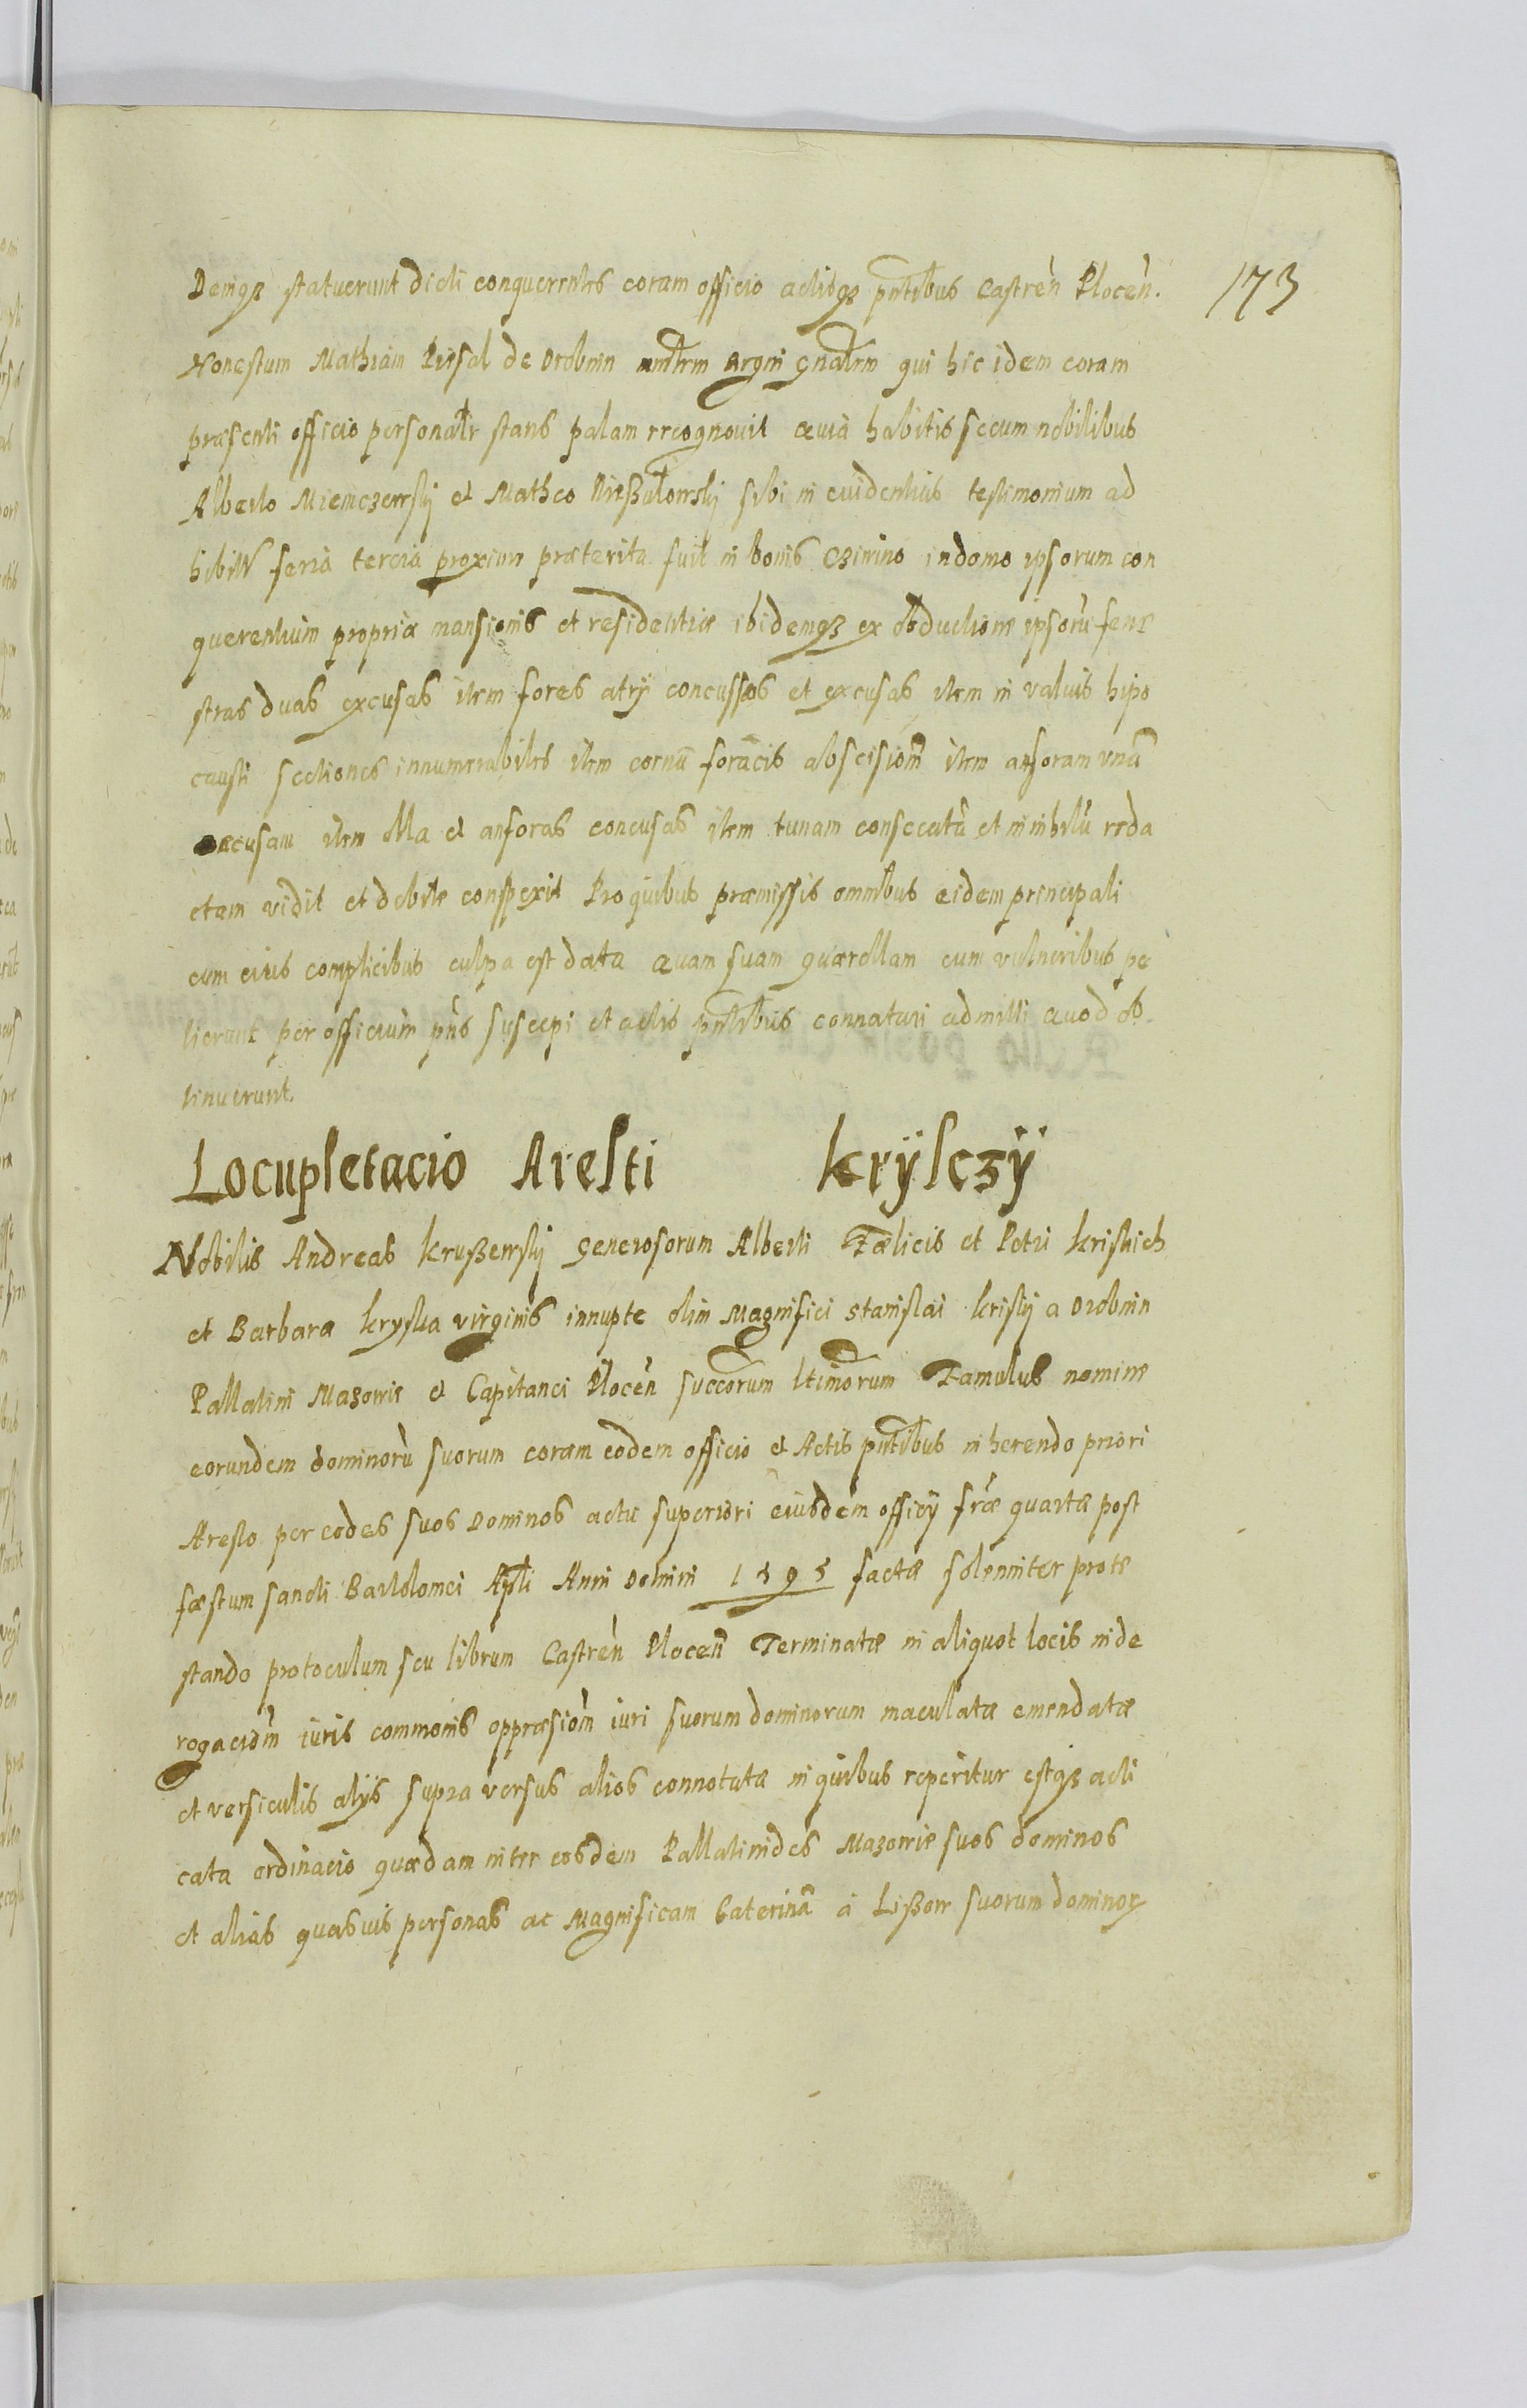 173
Deniqz statuerunt dicti conquerentes coram officio actisqz pntibus Castren Plocen.
Honestum Mathiam de Drobnin mnlrm Regni gnalrm qui hic idem coram
præsenti officio personalr stans palam recognouit quia habitis secum nobilibus
Alberto Miemczewskj et Matheo sibi in euidentius testimonium ad
hibitis feria tercia proxime præterita fuit in bonis Czinino in domo ipsorum con
querentium propria mansionis et residentiæ ibidemqz ex obductione ipsorū fene
stras duas excusas item fores atrÿ concussas et excusas item in valuis hipo
causti sectiones innumerabiles item cornu fornacis abscision item anforam vnā
excusam item olla et anforas concusas item tunam consecatū et in nihilū reda
ctam vidit et debite conspexit Pro quibus præmissis omnibus eidem principali
cum eius complicibus culpa est data quam suam quærellam cum vulneribus pe
tierunt per officium pns suscepi et actis pntibus connotari admitti quod ob
tinuerunt.
Locupletacio Aresti Krÿsczÿ
Nobilis Andreas Krußewskj generosorum Alberti Fælicis et Petri Kriskich
et Barbara Kryska virginis innupte olim Magnifici Stanislai Kriskj a Drobnin
Pallatini Mazowie et Capitanei Plocen succorum ltimorum Famulus nomine
eorundem dominorū suorum coram eodem officio et Actis pntibus inherendo priori
Aresto per eodes suos Dominos actu superiori eiusdem officÿ fræ quartæ post
fæstum sancti Bartolomei Apli Anni Domini 1595 factæ solenniter prote
stando protoculum seu librum Castren Plocen Terminatæ in aliquot locis in de
rogacionm iuris commonis oppræsionm iuri suorum dominorum maculatæ emendatæ
et versiculis alÿs supra versus alios connotatæ in quibus reperitur estqz acti
cata ordinacio quædam inter eosdem Pallatinides Mazowiæ suos dominos
et alias quasuis personas ac Magnificam Caterinā a Lißow suorum dominor